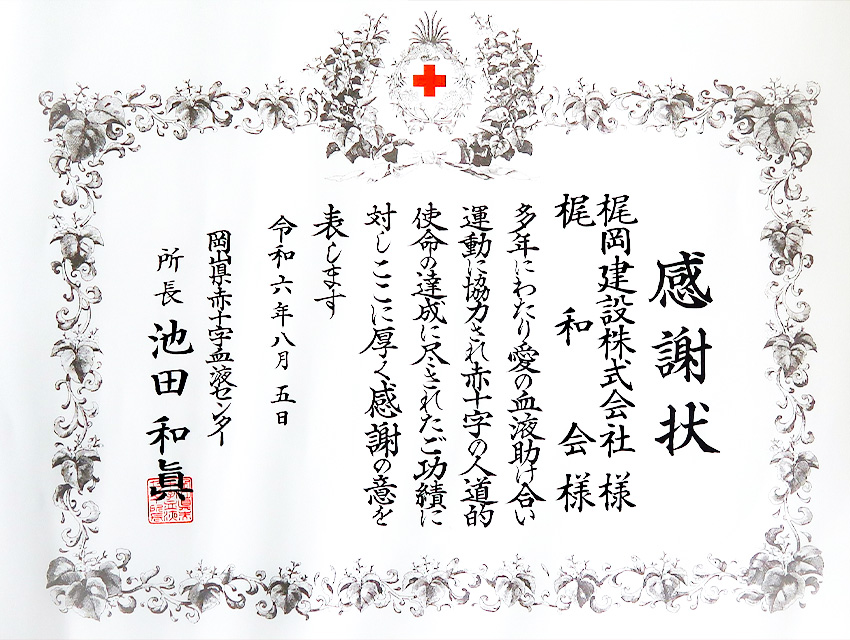 感謝状
梶岡建設株式会社 様
梶和会 様
多年にわたり愛の血液助け合い
運動に協力され赤十字の人道的
使命の達成に尽されたご功績に
対しここに厚く感謝の意を
表します
令和六年八月五日
岡山県赤十字血液センター
所長 池田和眞